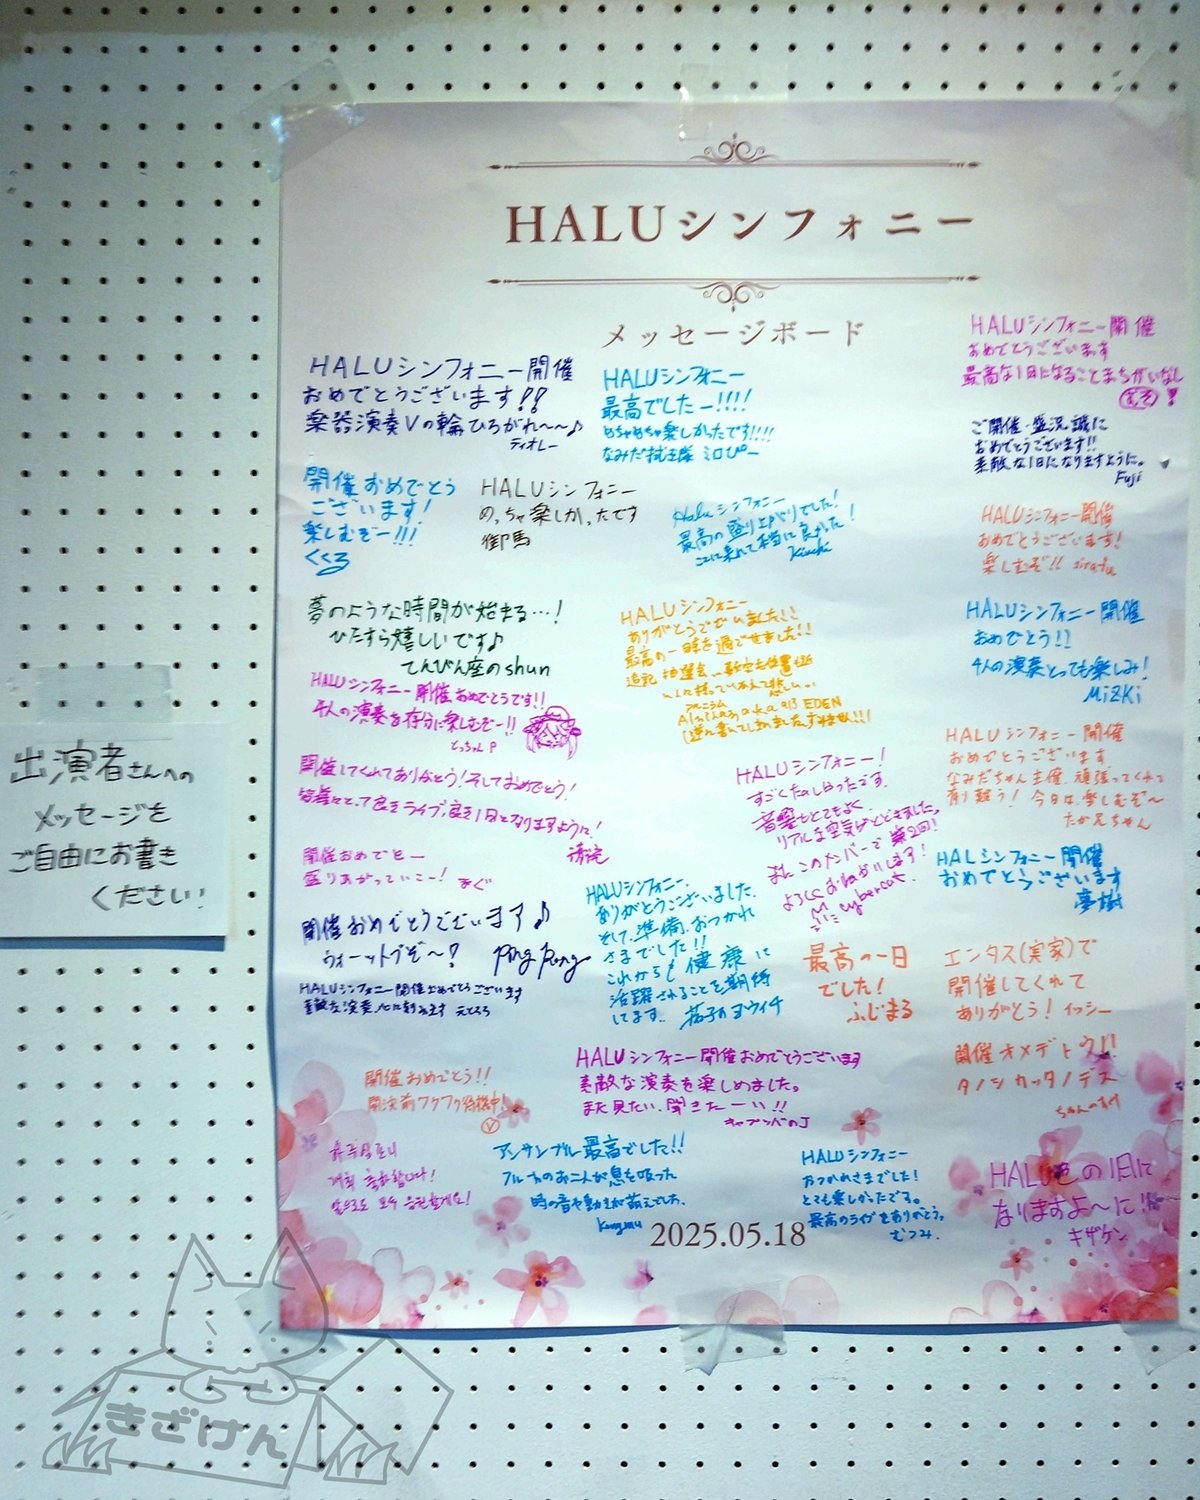 HALUシンフォニー
メッセージボード
HALUシンフォニー開催
おめでとうございます!!
楽器演奏Vの輪ひろがれ〜〜♪
ティオレー
HALUシンフォニー
最高でしたー!!!!
めちゃめちゃ楽しかったです!!!!
なみだ拭き隊 ミロぴー
HALUシンフォニー開催
おめでとうございます
最高な1日になることまちがいなし
ご開催・盛況誠に
おめでとうございます!!
素敵な1日になりますように。
Fuji
開催おめでとう
ございます!
楽しむぞー!!!
くくる
HALUシンフォニー
めっちゃ楽しかったです
御馬
Haluシンフォニー
最高の盛り上がりでした!
ここに来れて本当に良かった!
HALUシンフォニー開催
おめでとうございます!
楽しむぞ!! sirafu
夢のような時間が始まる…!
ひたすら嬉しいです♪
てんびん座のshun
HALUシンフォニー
ありがとうございました!!
最高の一時を過ごせました!!
追記 抽選会
aka ab EDEN
HALUシンフォニー開催
おめでとう!!
4人の演奏とっても楽しみ!
MiZKi
HALUシンフォニー開催おめでとうです!!
4人の演奏を存分に楽しむぞー!!
とっちゃんP
開催してくれてありがとう!そしておめでとう!
皆様にとって良きライブ、良き1日となりますように!
HALUシンフォニー!
すごくたのしかったです。
音響もとてもよく、
リアルな空気がとどきました。
またこのメンバーで第2回!
よろしくおねがいします!
cybercat.
HALUシンフォニー開催
おめでとうございます
なみだちゃん主催、頑張ってくれて
有り難う! 今日は楽しむぞ〜
たか兄ちゃん
開催おめでとー
盛りあがっていこー! まぐ
HALシンフォニー開催
おめでとうございます
夢樹
開催おめでとうございます♪
ウォーットブぞ〜?
Ping Pong
HALUシンフォニー開催おめでとうございます
素敵な演奏、心に刻みます
HALUシンフォニー、
ありがとうございました。
そして、準備、おつかれ
さまでした!!
これからも健康に
活躍されることを期待
してます。
茄子のヨウイチ
最高の一日
でした!
ふじまる
エンタス(実家)で
開催してくれて
ありがとう! イッシー
開催オメデトウ!!
タノシカッタノデス
開催おめでとう!!
開演前ワクワク待機中!
HALUシンフォニー開催おめでとうございます
素敵な演奏を楽しめました。
また見たい、聞きたーい!!
キャプンバのJ
アンサンブル最高でした!!
フルートのお二人が息を吸った
時の音や動きが萌えでした。
HALUシンフォニー
おつかれさまでした!
とても楽しかったです。
最高のライブをありがとう。
むつみ
HALU色の1日に
なりますよ〜に!!
キザケン
2025.05.18
出演者さんへの
メッセージを
ご自由にお書き
ください!
きざけん